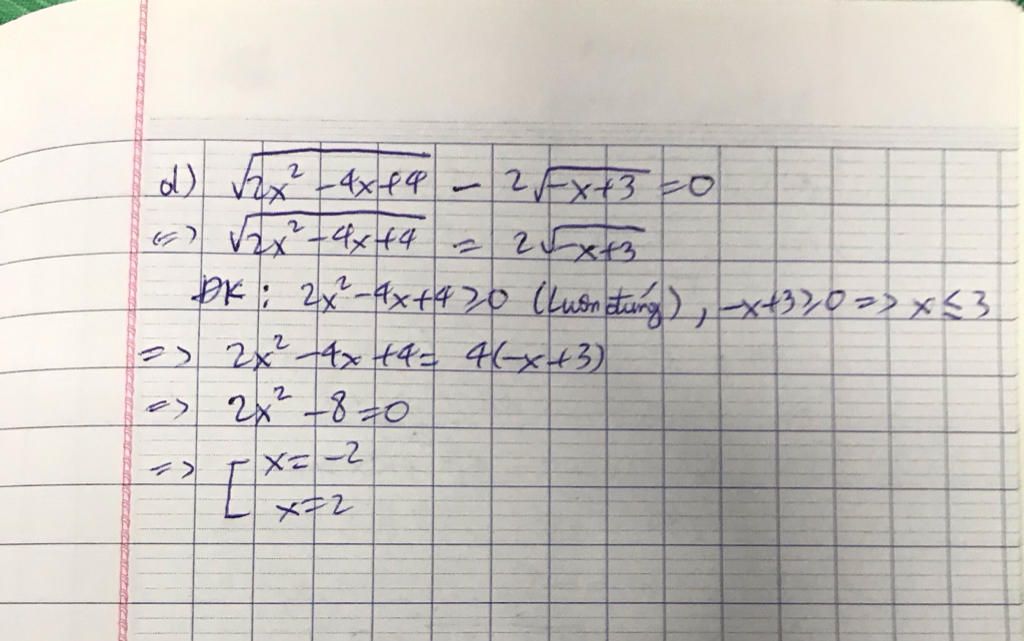 d) √(2x² - 4x + 4) - 2√(-x+3) = 0
<=> √(2x² - 4x + 4) = 2√(-x+3)
ĐK : 2x² - 4x + 4 ≥ 0 (Luôn đúng) , -x+3 ≥ 0 => x ≤ 3
=> 2x² - 4x + 4 = 4(-x+3)
=> 2x² - 8 = 0
=> [ x = -2
x = 2